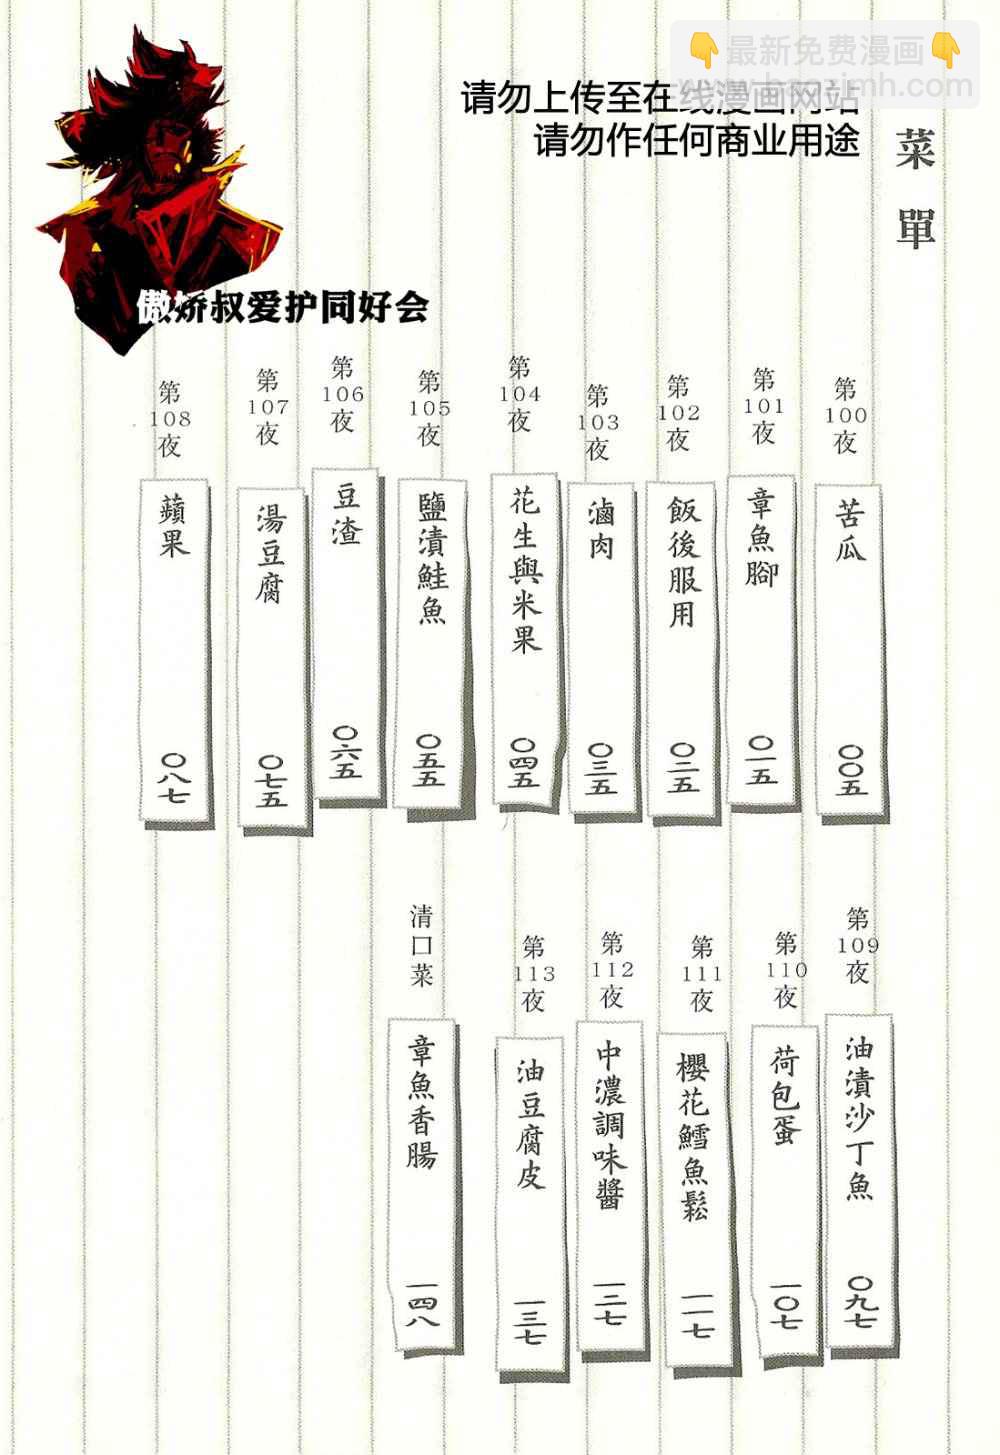 👇最新免费漫画👇
www.baozimh.com
请勿上传至在线漫画网站
请勿作任何商业用途
菜單
傲娇叔爱护同好会
第100夜
苦瓜
〇〇五
第101夜
章魚腳
〇一五
第102夜
飯後服用
〇二五
第103夜
滷肉
〇三五
第104夜
花生與米果
〇四五
第105夜
鹽漬鮭魚
〇五五
第106夜
豆渣
〇六五
第107夜
湯豆腐
〇七五
第108夜
蘋果
〇八七
第109夜
油漬沙丁魚
〇九七
第110夜
荷包蛋
一〇七
第111夜
櫻花鱈魚鬆
一一七
第112夜
中濃調味醬
一二七
第113夜
油豆腐皮
一三七
清口菜
章魚香腸
一四八